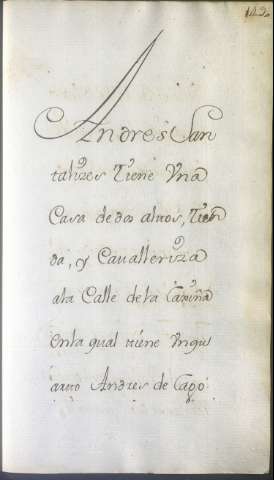 Andres San
talizes Tiene Vna
Casa de dos altos, Tien
da, y Cavalleriza
a la Calle de la
en la qual tiene Vn qu
arto Andres de